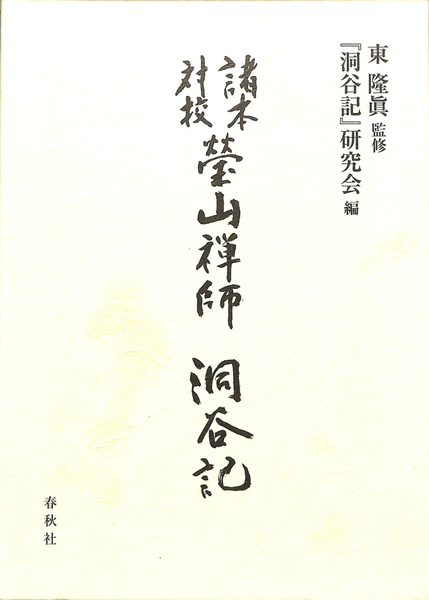 東 隆眞 監修
『洞谷記』研究会 編
諸本
対校
瑩山禅師 洞谷記
春秋社